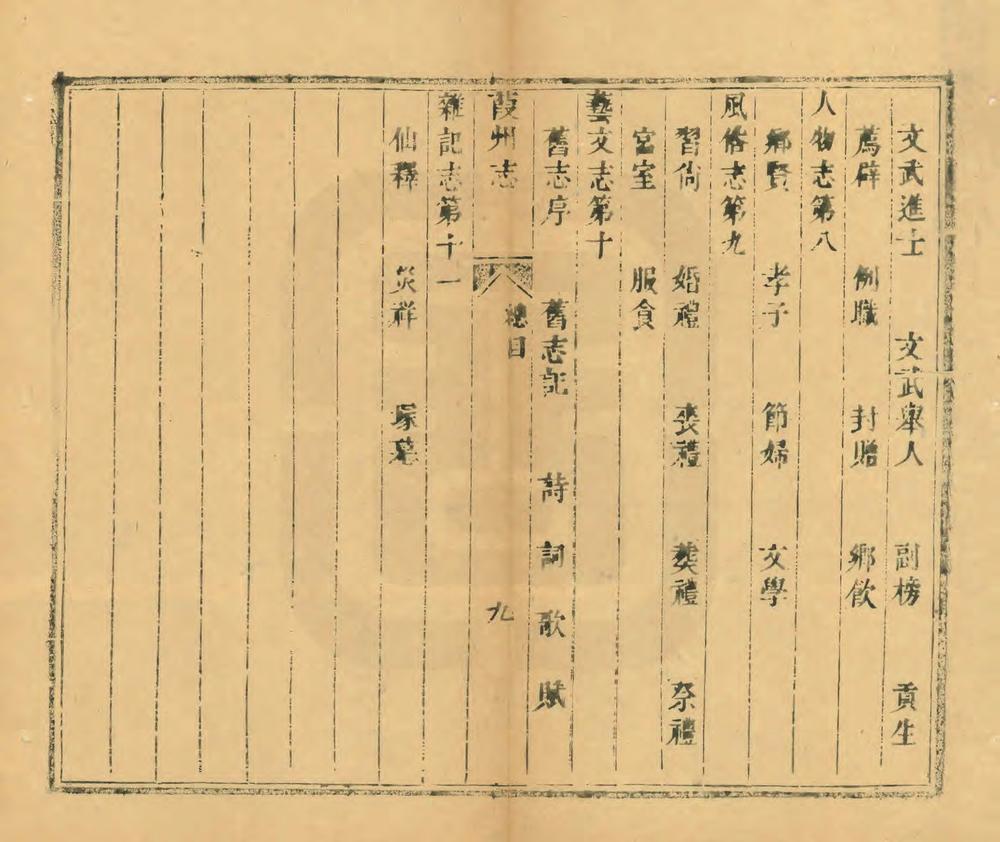 文武進士　文武舉人　副榜　貢生
薦辟　例職　封贈　鄉飲
人物志第八
鄉賢　孝子　節婦　文學
風俗志第九
習尚　婚禮　喪禮　葬禮　祭禮
宮室　服食
藝文志第十
舊志序　舊志記　詩　詞　歌　賦
葭州志　總目　九
雜記志第十一
仙釋　災祥　塚墓